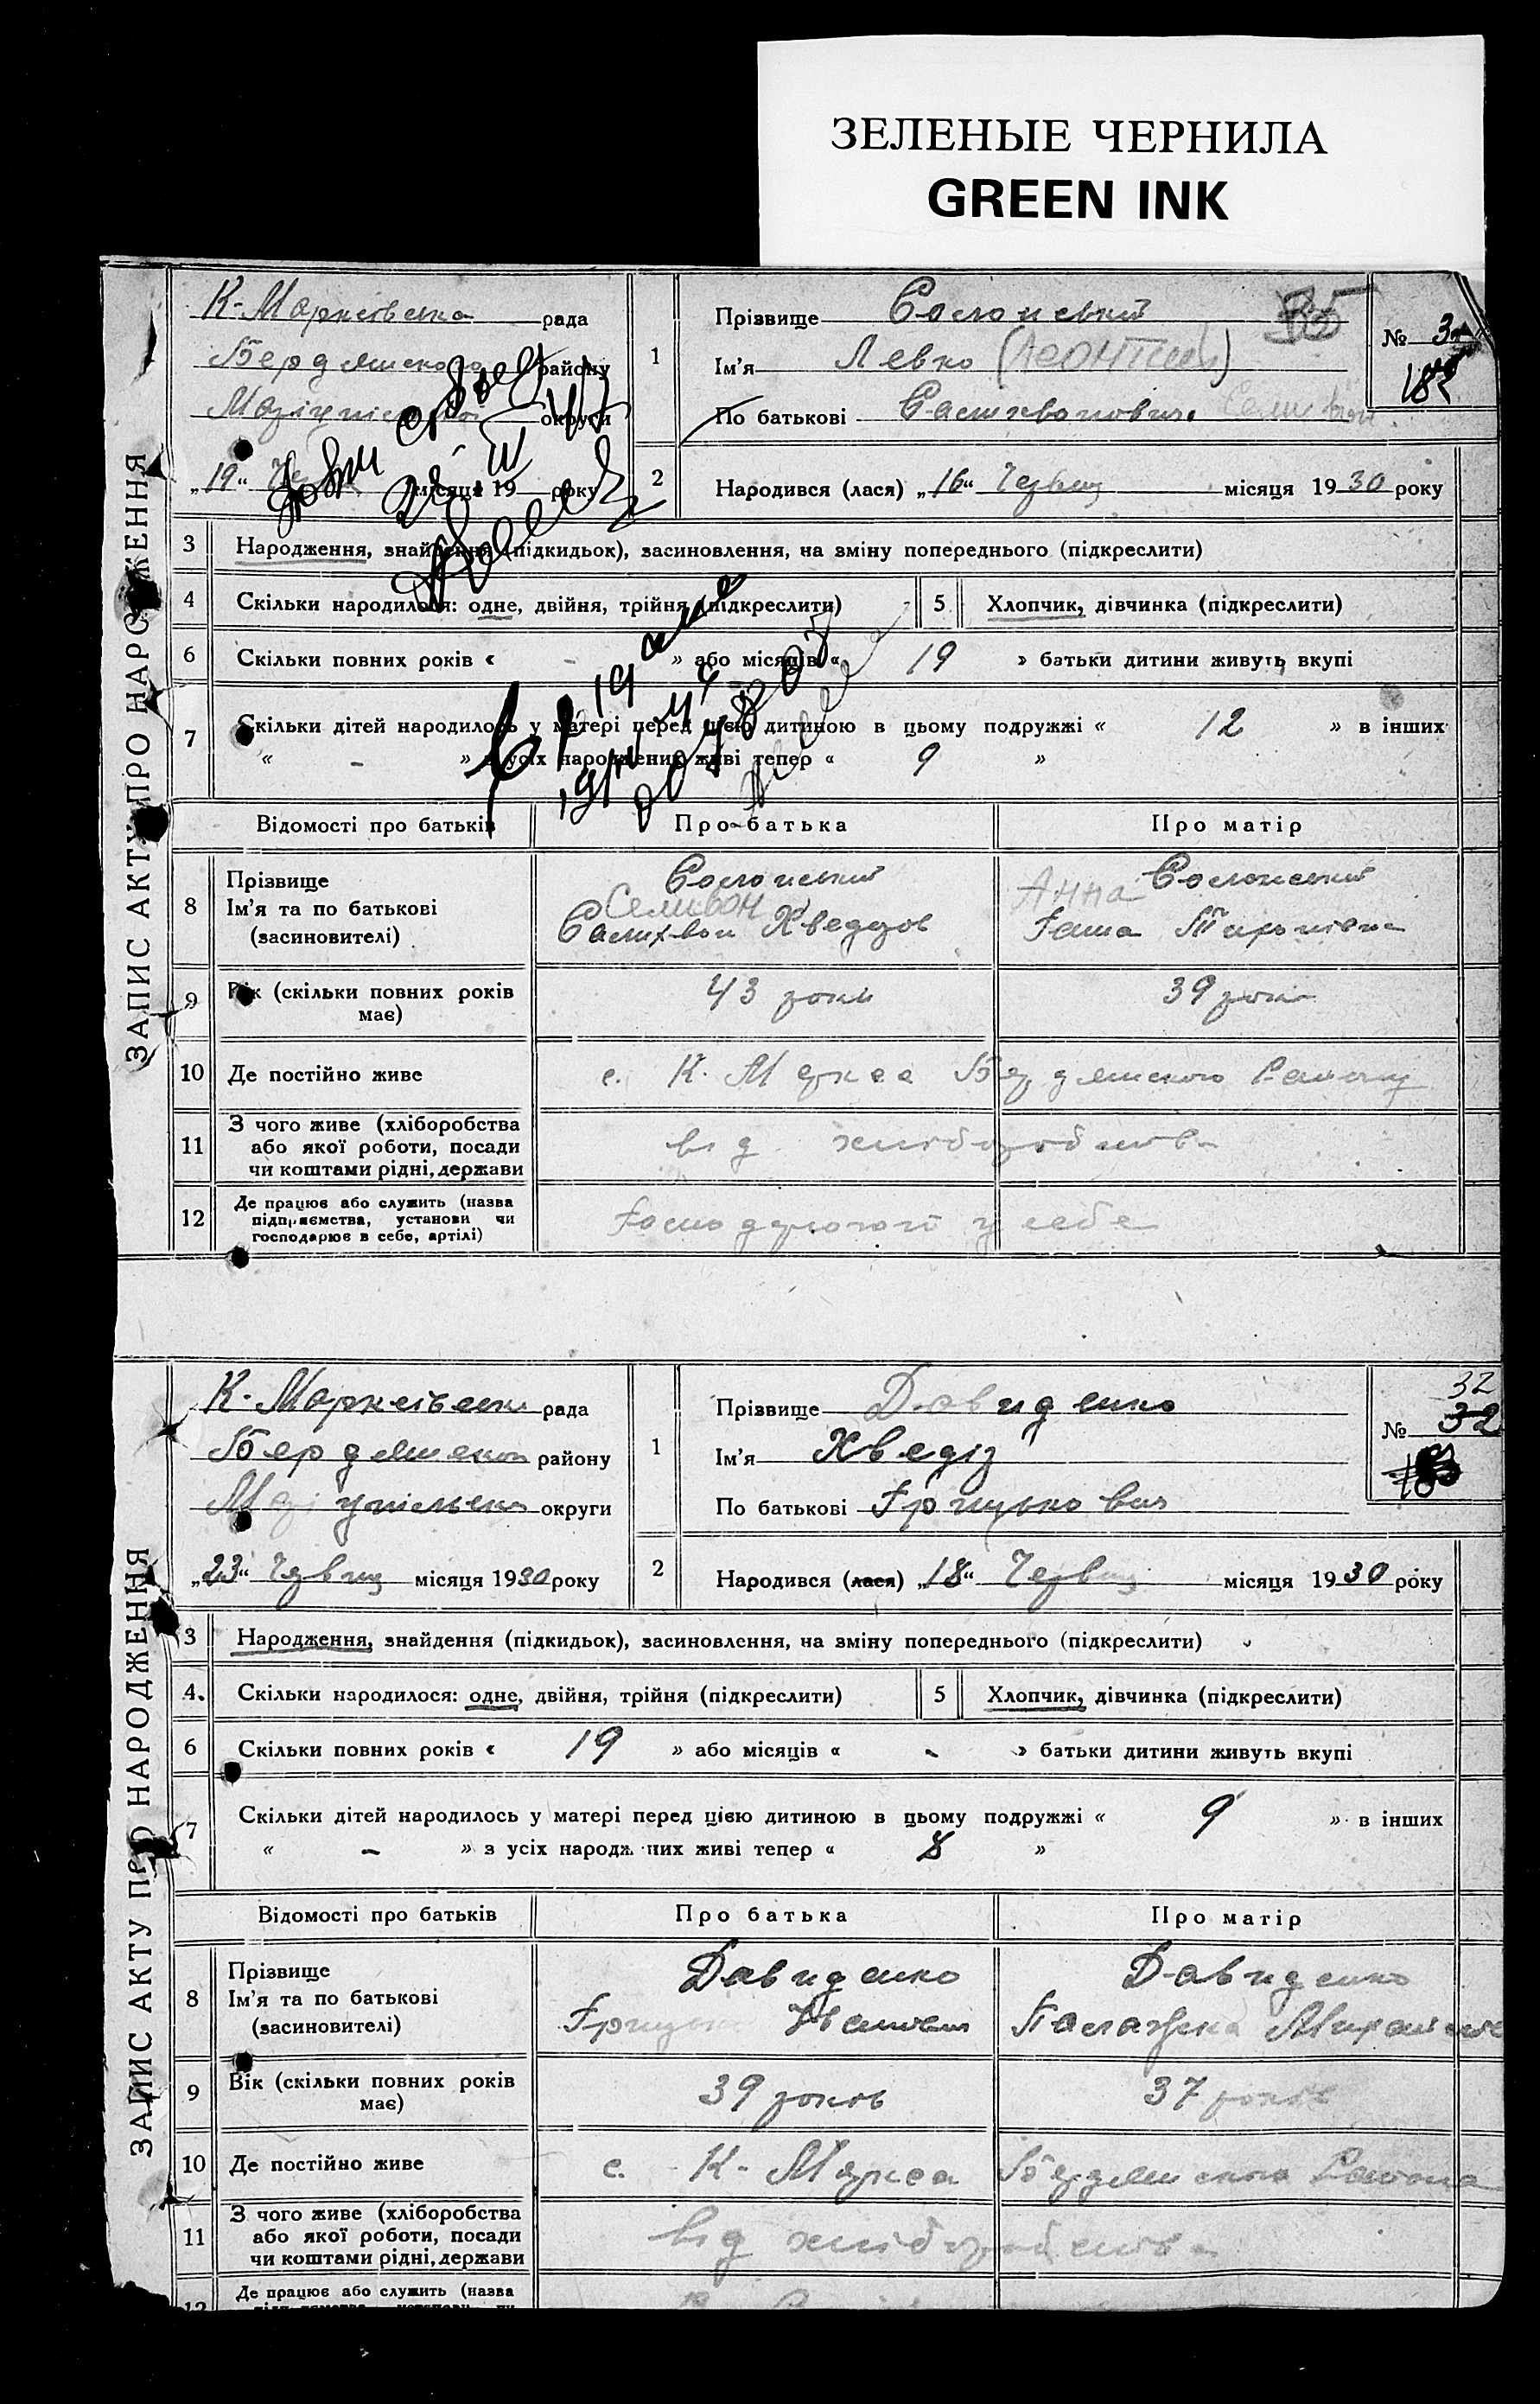 ЗЕЛЕНЫЕ ЧЕРНИЛА
GREEN INK
ЗАПИС АКТУ ПРО НАРОДЖЕННЯ
К-Марксівська рада
Бердянського району
округи
„19“ місяця 19 року
1
Прізвище
Ім'я Левко (Леонтий)
По батькові
№
2
Народився (лася) „16“ Червця місяця 1930 року
3 Народження, знайдення (підкидьок), засиновлення, на зміну попереднього (підкреслити)
4 Скільки народилося: одне, двійня, трійня (підкреслити)
5 Хлопчик, дівчинка (підкреслити)
6 Скільки повних років « - » або місяців « 19 » батьки дитини живуть вкупі
7 Скільки дітей народилось у матері перед цією дитиною в цьому подружжі « 12 » в інших
« - » з усіх народжених живі тепер « 9 »
Відомості про батьків Про батька Про матір
8 Прізвище
Ім'я та по батькові Селивон Анна
(засиновителі)
9 Вік (скільки повних років має) 43 роки 39 років
10 Де постійно живе с. К. Маркса Бердянського Району
11 З чого живе (хліборобства
або якої роботи, посади від хліборобства
чи коштами рідні, держави
12 Де працює або служить (назва
підприємства, установи чи у себе
господарює в себе, артілі)
ЗАПИС АКТУ ПРО НАРОДЖЕННЯ
К-Марксівська рада
Бердянськог району
Маріупільська округи
„23“ Червця місяця 1930 року
1
Прізвище Давиденко
Ім'я Хведір
По батькові Грицькович
32
№ 32
2
Народився (лася) „18“ Червця місяця 1930 року
3 Народження, знайдення (підкидьок), засиновлення, на зміну попереднього (підкреслити)
4. Скільки народилося: одне, двійня, трійня (підкреслити)
5 Хлопчик, дівчинка (підкреслити)
6 Скільки повних років « 19 » або місяців « - » батьки дитини живуть вкупі
7 Скільки дітей народилось у матері перед цією дитиною в цьому подружжі « 9 » в інших
« - » з усіх народжених живі тепер « 8 »
Відомості про батьків Про батька Про матір
8 Прізвище Давиденко Давиденко
Ім'я та по батькові Грицько Палажка
(засиновителі)
9 Вік (скільки повних років має) 39 років 37 років
10 Де постійно живе с. К. Маркса Бердянського Района
11 З чого живе (хліборобства
або якої роботи, посади від хліборобства
чи коштами рідні, держави
12 Де працює або служить (назва